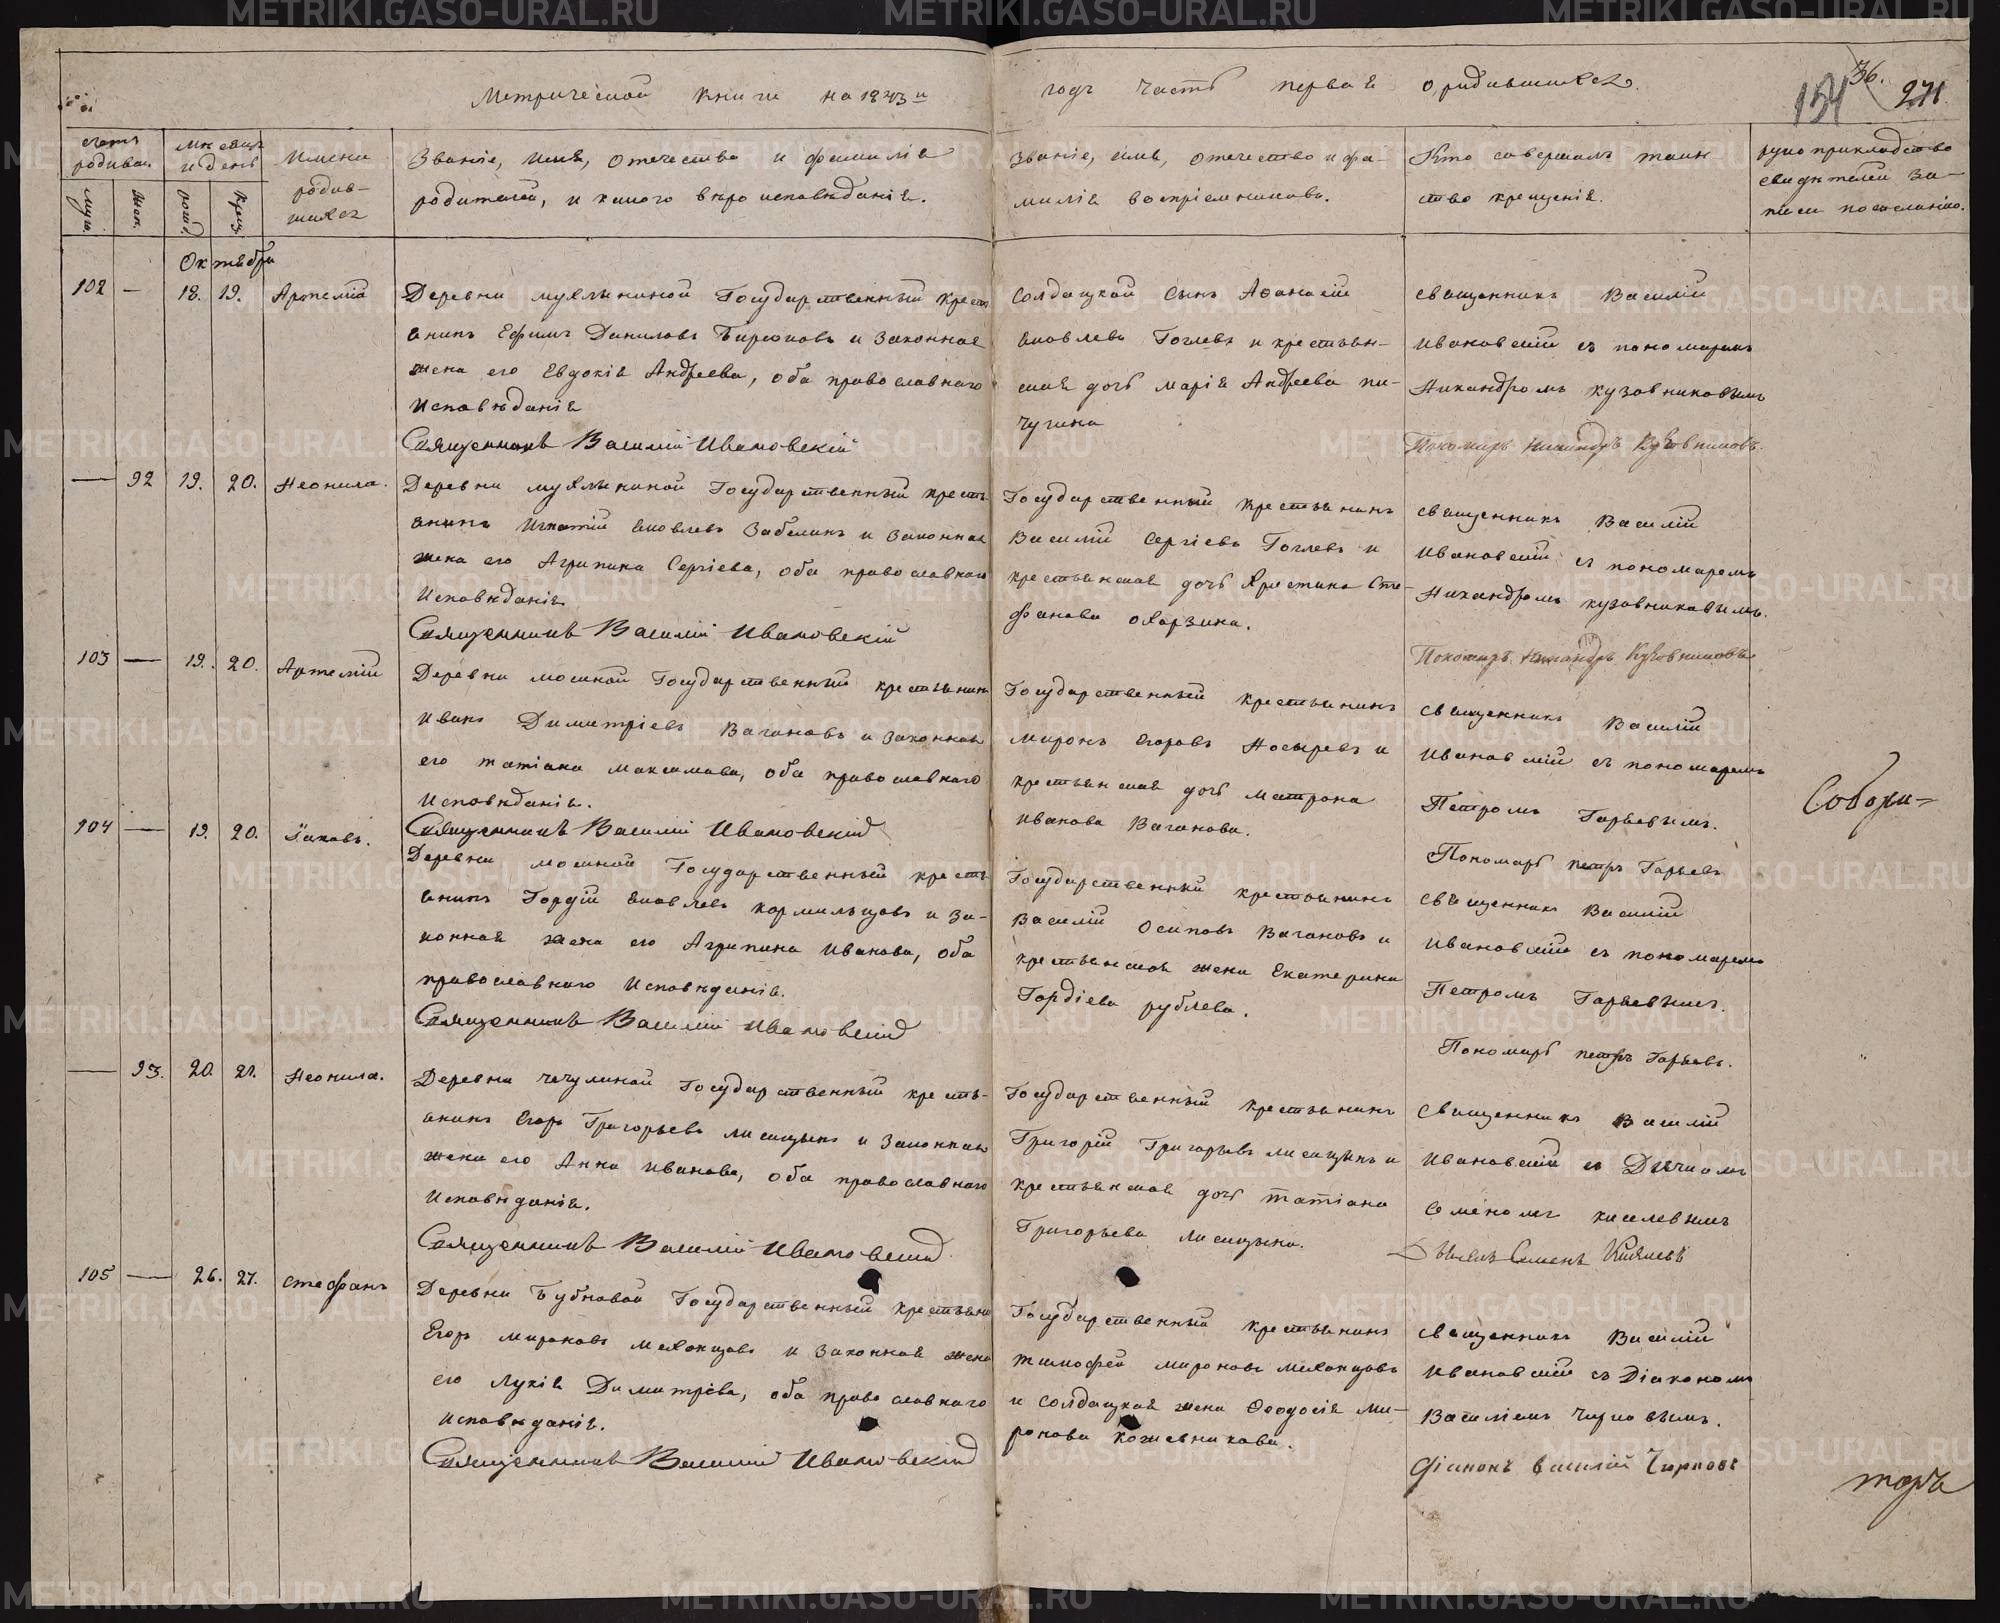 Метрической книги на 1843й
годъ часть первая о родившихся.
36.
154
271.
счетъ родивш.
мѣсяцъ и день
Имена родив-
шихся
муж.
жен.
рожд.
крещ.
Званіе, имя, отечество и фамилія
родителей, и какого вѣроисповѣданія.
Званіе, имя, отечество и фа-
милія воспріемниковъ.
Кто совершалъ таин-
ство крещенія.
рукоприкладство
свидѣтелей за-
писи по желанію.
Октября
102 — 18. 19. Артемій
Деревни Мухлыниной Государственный крестья
анинъ Ефимъ Даниловъ Бирюковъ и законная
жена его Евдокія Андреева, оба православнаго
исповѣданія
Священникъ Василій Ивановскій
Солдацкой сынъ Афанасій
Яковлевъ Гоглевъ и крестьян-
ская дочь Марія Андреева пи-
чугина
священникъ Василій
Ивановскій съ пономаремъ
Никандромъ Кузовниковымъ
Пономарь Никандръ Кузовниковъ.
— 92 19. 20. Неонила.
Деревни Мухлыниной Государственный кресть
янинъ Игнатій Яковлевъ Забелинъ и законная
жена его Агрипина Сергіева, оба православнаго
Исповѣданія
Священникъ Василій Ивановскій
Государственный крестьянинъ
Василій Сергіевъ Гоглевъ и
крестьянская дочь Христина Сте-
фанова
священникъ Василій
Ивановскій съ пономаремъ
Никандромъ Кузовниковымъ.
Пономарь Никандръ Кузовниковъ
103 — 19. 20. Артемій
Деревни мошкой Государственный крестьянинъ
Иванъ Димитріевъ Вагановъ и законная
его татіана Максимова, оба православнаго
Исповѣданія.
Священникъ Василій Ивановскій
Государственный крестьянинъ
Миронъ Егоровъ Носыревъ и
крестьянская дочь Матрона
Иванова Ваганова.
священникъ Василій
Ивановскій съ пономаремъ
Петромъ Гаряевымъ.
Пономарь петръ Гаряевъ
Собори-
104 — 19. 20. Іаковъ.
Деревни мошкой Государственный кресть
янинъ Гордій Яковлевъ Кормильцовъ и за-
конная жена его Агрипина Иванова, оба
православнаго Исповѣданія.
Священникъ Василій Ивановскій
Государственный крестьянинъ
Василій Осиповъ Вагановъ и
крестьянская жена Екатерина
Гордіева рублева.
священникъ Василій
Ивановскій съ пономаремъ
Петромъ Гаряевымъ.
Пономарь петръ Гаряевъ.
— 93. 20. 21. Неонила.
Деревни чечулиной Государственный кресть-
янинъ Егоръ Григорьевъ лисицынъ и законная
жена его Анна Иванова, оба православнаго
Исповѣданія.
Священникъ Василій Ивановскій
Государственный крестьянинъ
Григорій Григорьевъ лисицынъ и
крестьянская дочь татіана
Григорьева лисицына.
священникъ Василій
Ивановскій съ Дьячкомъ
Семеномъ киселевымъ
Дьячекъ Семенъ Киселевъ
105 — 26. 27. Стефанъ
Деревни Бубновой Государственный крестьянин
Егоръ Мироновъ Мехонцовъ и законная жена
его Лукія Димитріева, оба православнаго
исповѣданія.
Священникъ Василій Ивановскій
Государственный крестьянинъ
тимофей Мироновъ Мехонцовъ
и солдацкая жена Феодосія Ми-
ронова Кожевникова.
священникъ Василій
Ивановскій съ Діакономъ
Василіемъ Чирковымъ.
Діаконъ Василій Чирковъ
торъ